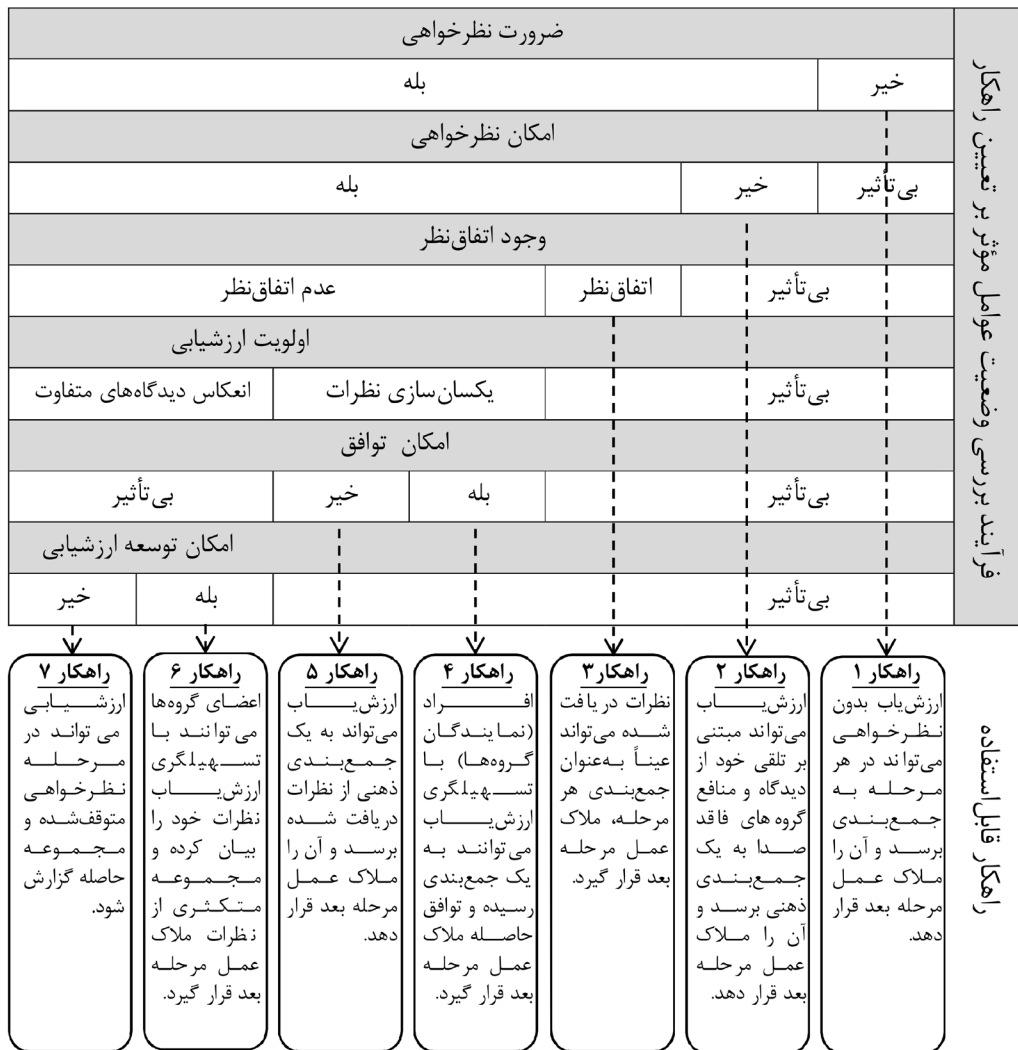 فرآیند بررسی وضعیت عوامل مؤثر بر تعیین راهکار
ضرورت نظرخواهی
خیر
بله
امکان نظرخواهی
بی‌تأثیر
خیر
بله
وجود اتفاق‌نظر
بی‌تأثیر
اتفاق‌نظر
عدم اتفاق‌نظر
اولویت ارزشیابی
بی‌تأثیر
یکسان‌سازی نظرات
انعکاس دیدگاه‌های متفاوت
امکان توافق
بی‌تأثیر
بله
خیر
بی‌تأثیر
امکان توسعه ارزشیابی
بی‌تأثیر
بله
خیر
راهکار قابل‌استفاده
راهکار ۱
ارزش‌یاب بدون
نظرخواهی
می‌تواند در هر
مرحله به
جمع‌بندی
برسد و آن را
ملاک عمل
مرحله بعد قرار
دهد.
راهکار ۲
ارزش‌یاب
می‌تواند مبتنی
بر تلقی خود از
دیدگاه و منافع
گروه های فاقد
صدا به یک
جمع‌بندی
ذهنی برسد و
آن را ملاک
عمل مرحله
بعد قرار دهد.
راهکار۳
نظرات دریافت
شده می‌تواند
عیناً به‌عنوان
جمع‌بندی هر
مرحله، ملاک
عمل مرحله
بعد قرار گیرد.
راهکار ۴
افراد
(نمایندگان
گروه‌ها) با
تسهیلگری
ارزش‌یاب
می‌توانند به
یک جمع‌بندی
رسیده و توافق
حاصله ملاک
عمل مرحله
بعد قرار گیرد.
راهکار ۵
ارزش‌یاب
می‌تواند به یک
جمع‌بندی
ذهنی از نظرات
دریافت شده
برسد و آن را
ملاک عمل
مرحله بعد قرار
دهد.
راهکار ۶
اعضای گروه‌ها
می توانند با
تسهیلگری
ارزش‌یاب
نظرات خود را
بیان کرده و
مجموعه
متکثری از
نظرات ملاک
عمل مرحله
بعد قرار گیرد.
راهکار ۷
ارزشیابی
می تواند در
مرحله
نظرخواهی
متوقف‌شده و
مجموعه
حاصله گزارش
شود.